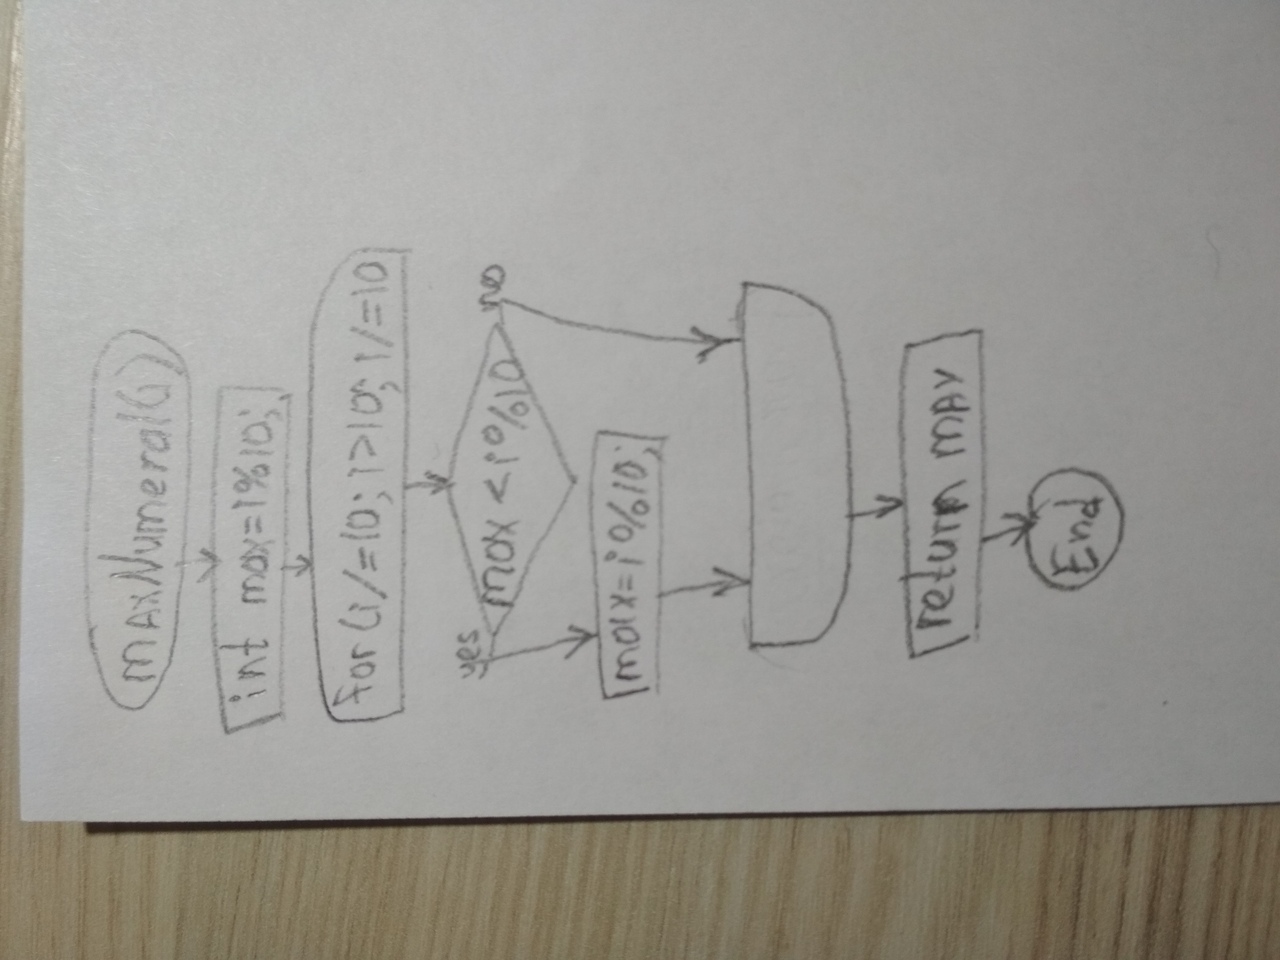 maxNumeral(i)
int max=i%10;
for(i/=10; i>10; i/=10
max<i%10
yes
no
max=i%10;
return max
End